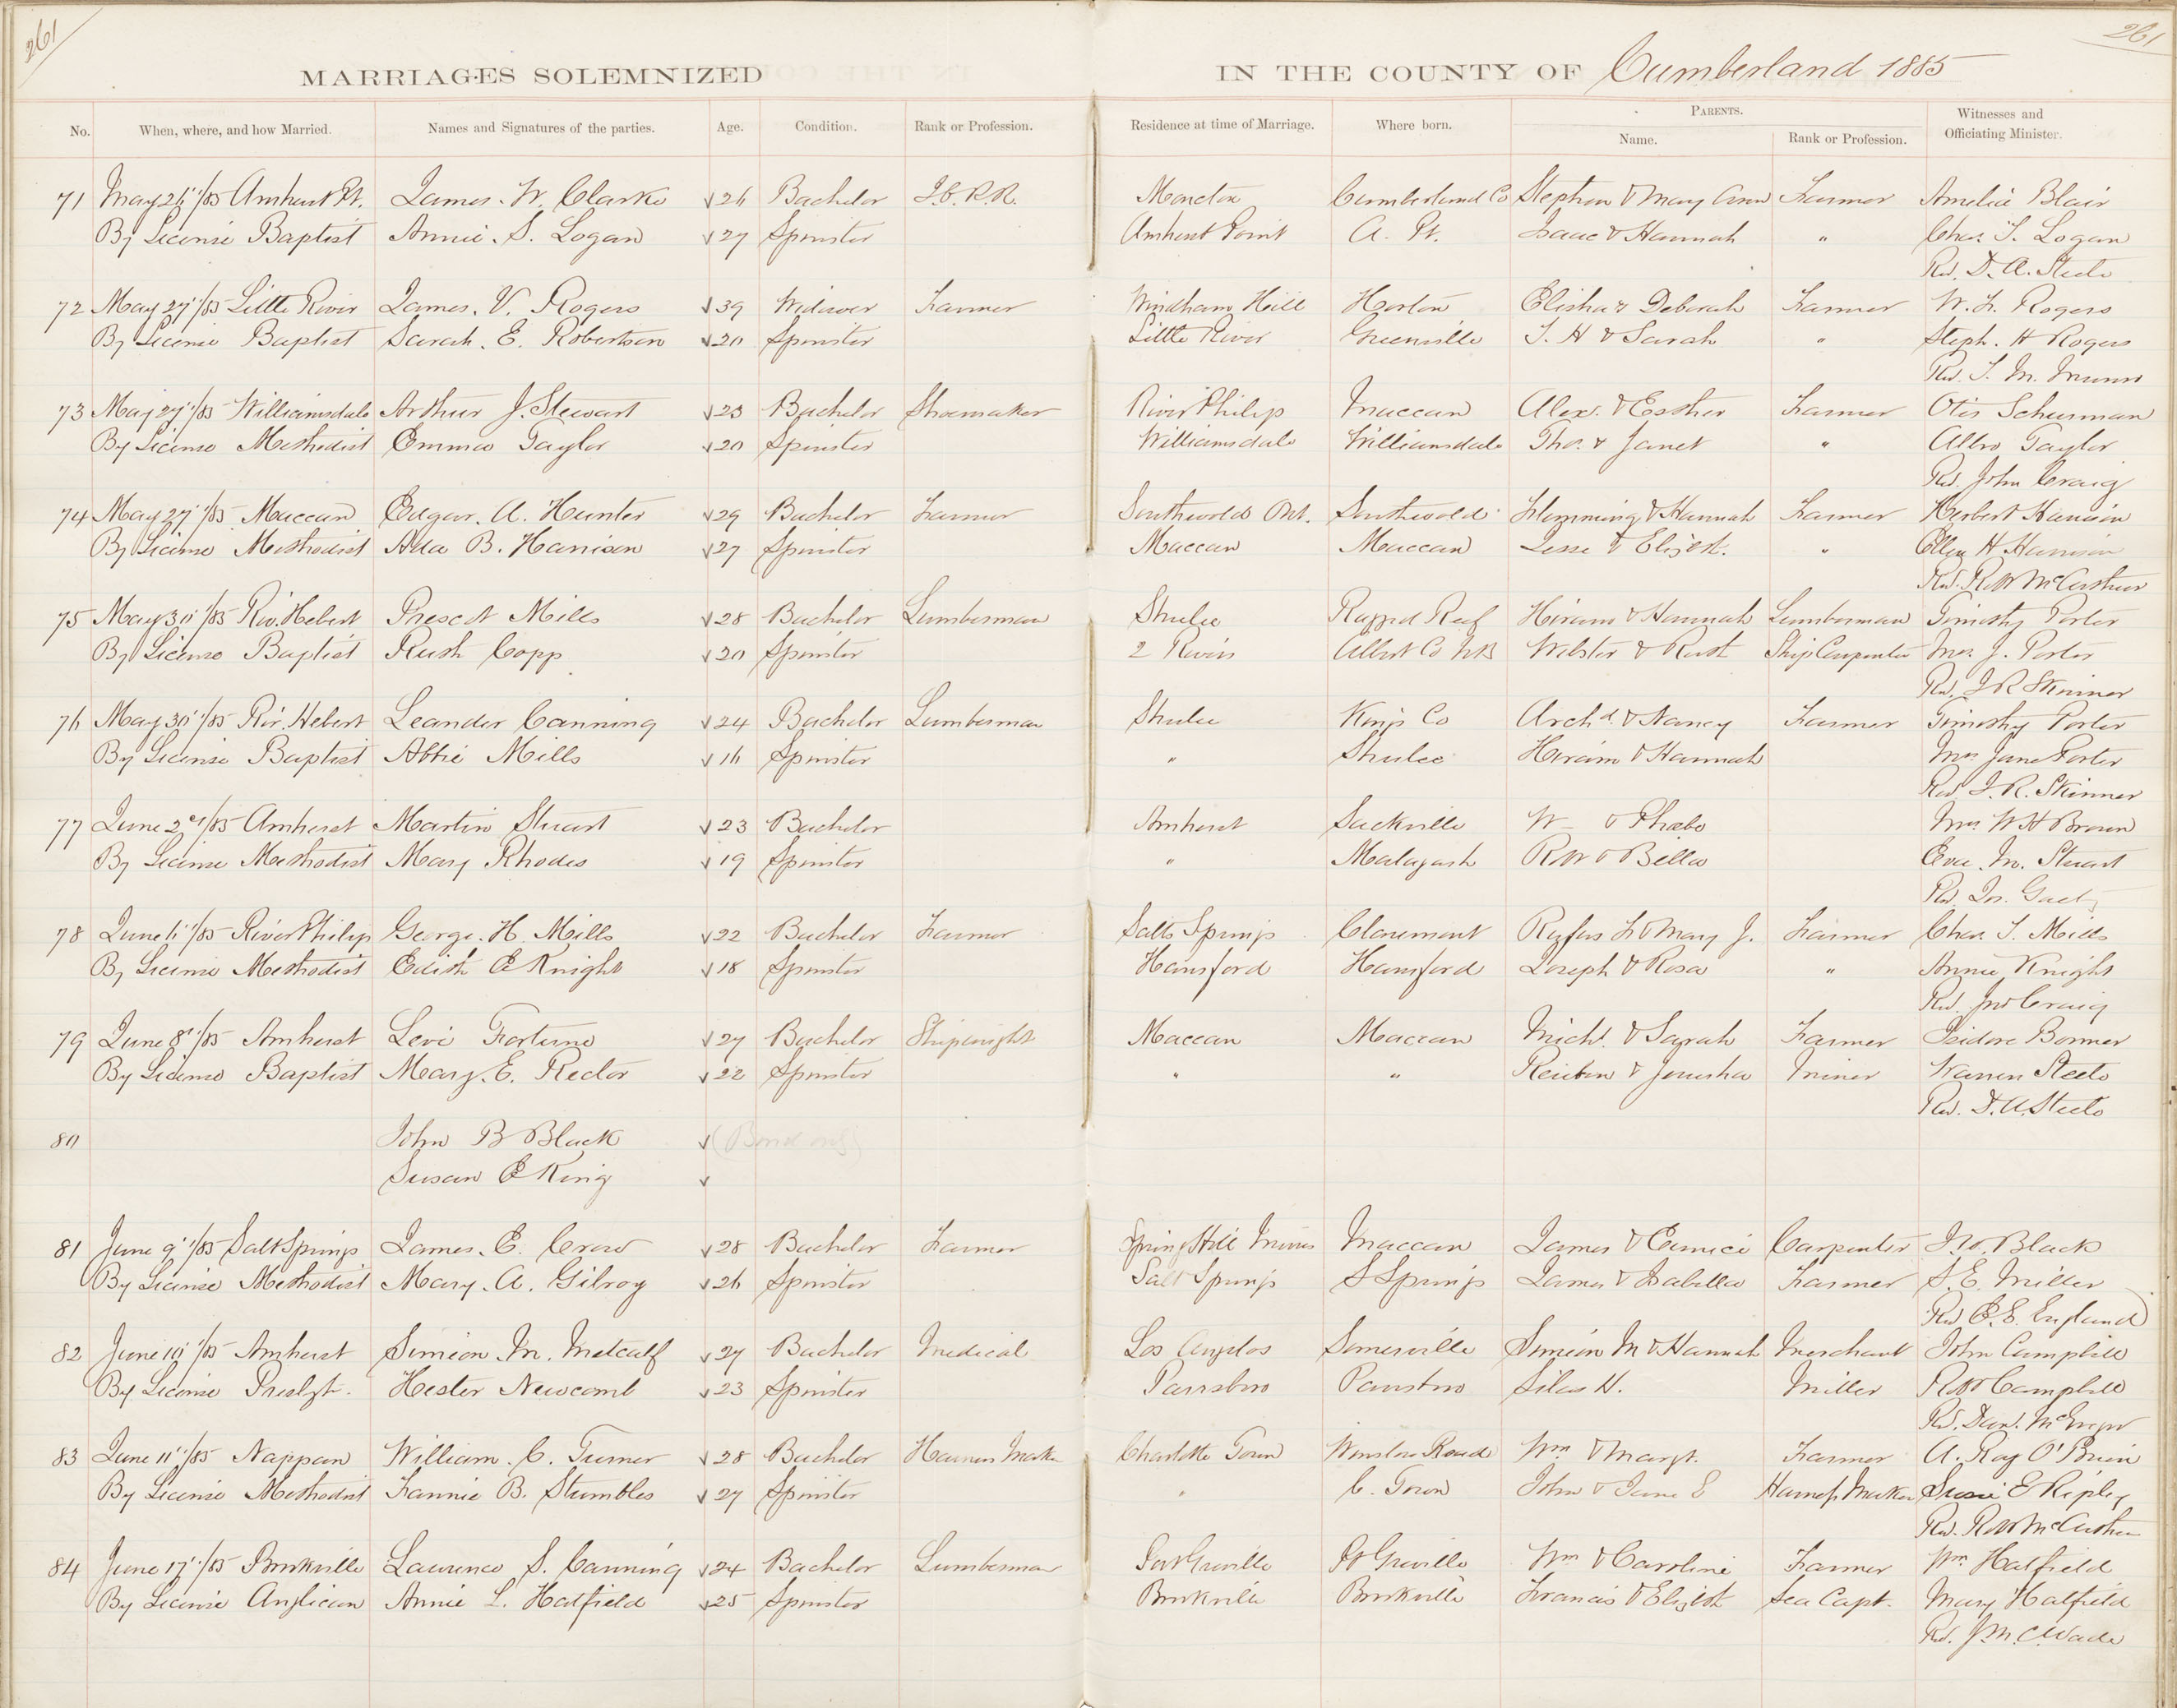 261
261
MARRIAGES SOLEMNIZED IN THE COUNTY OF Cumberland 1885
No. When, where, and how Married. Names and Signatures of the parties. Age. Condition. Rank or Profession. Residence at time of Marriage. Where born. PARENTS. Name. Rank or Profession. Witnesses and Officiating Minister.
71 May 26"/85 Amherst Pt. James. W. Clarke √26 Bachelor I.C.R.R. Moncton Cumberland Co Stephen & Mary Ann Farmer Amelia Blair
By License Baptist Annie. S. Logan √27 Spinster Amherst Point A. Pt. Isaac & Hannah " Chas. T. Logan
Rev. D. A. Steele
72 May 27"/85 Little River James. V. Rogers √39 Widower Farmer Windham Hill Horton Elisha & Deborah Farmer W. F. Rogers
By License Baptist Sarah. E. Robertson √20 Spinster Little River Greenville T. H & Sarah " Steph. H Rogers
Rev. T. M. Munro
73 May 27"/85 Williamsdale Arthur J. Stewart √23 Bachelor Shoemaker River Philip Maccan Alex. & Esther Farmer Otis Schurman
By License Methodist Emma Taylor √20 Spinster Williamsdale Williamsdale Thos. & Janet " Albro Taylor
Rev. John Craig
74 May 27"/85 Maccan Edgar. A. Hunter √29 Bachelor Farmer Southwold Ont. Southwold Flemming & Hannah Farmer Herbert Harrison
By License Methodist Ada B. Harrison √27 Spinster Maccan Maccan Jesse & Elizbt. " Ellen H Harrison
Rev. Robt McArthur
75 May 30"/85 Riv. Hebert Prescot Mills √28 Bachelor Lumberman Shulee Ragged Reef Hiram & Hannah Lumberman Timothy Porter
By License Baptist Rush Copp √20 Spinster 2 Rivers Albert Co NB Webster & Ruth Ship Carpenter Mrs. J. Porter
Rev. I R Skinner
76 May 30"/85 Riv. Hebert Leander Canning √24 Bachelor Lumberman Shulee Kings Co Archd. & Nancy Farmer Timothy Porter
By License Baptist Abbie Mills √16 Spinster " Shulee Hiram & Hannah Mrs Jane Porter
Rev. I. R. Skinner
77 June 2nd/85 Amherst Martin Stuart √23 Bachelor Amherst Sackville W & Phœbe Mrs W H Brown
By License Methodist Mary Rhodes √19 Spinster " Malagash Robt & Bella Eva M. Stuart
Rev. Jos. Gaetz
78 June 6"/85 River Philip George. H. Mills √22 Bachelor Farmer Salt Springs Claremont Rufus F & Mary J. Farmer Chas. T. Mills
By License Methodist Edith E Knight √18 Spinster Hansford Hansford Joseph & Rosa " Annie Knight
Rev. Jno Craig
79 June 8"/85 Amherst Levi Fortune √27 Bachelor Shipwright Maccan Maccan Michl. & Sarah Farmer Isidore Bonner
By License Baptist Mary. E. Rector √22 Spinster " " Reuben & Jerusha Miner Warren Steele
Rev. D. A. Steele
80 John B Black √ (Bond only)
Susan E King √
81 June 9"/85 Salt Springs James. E. Crow √28 Bachelor Farmer Spring Hill Mines Maccan James & Eunice Carpenter J. W. Black
By License Methodist Mary. A. Gilroy √26 Spinster Salt Springs S Springs James & Isabella Farmer S. E. Miller
Rev E. E. England
82 June 10"/85 Amherst Simeon. M. Metcalf √27 Bachelor Medical Los Angelos Somerville Simeon M & Hannah Merchant John Campbell
By License Presbyt. Hester Newcomb √23 Spinster Parrsboro Parrsboro Silas H. Miller Robt Campbell
Rev. Danl. McGregor
83 June 11"/85 Nappan William. C. Turner √28 Bachelor Harness Maker Charlotte Town Winsloe Road Wm & Margt. Farmer A. Roy O'Brien
By License Methodist Fannie B. Stumbles √27 Spinster " C. Town John & Jane E Harness Maker Susie E Ripley
Rev. Robt McArthur
84 June 17"/85 Brookville Laurence S. Canning √24 Bachelor Lumberman Port Greville Pt Greville Wm & Caroline Farmer Wm. Hatfield
By License Anglican Annie L. Hatfield √25 Spinster Brookville Brookville Francis & Elizbt Sea Capt. Mary Hatfield
Rev. J. M. C. Wade